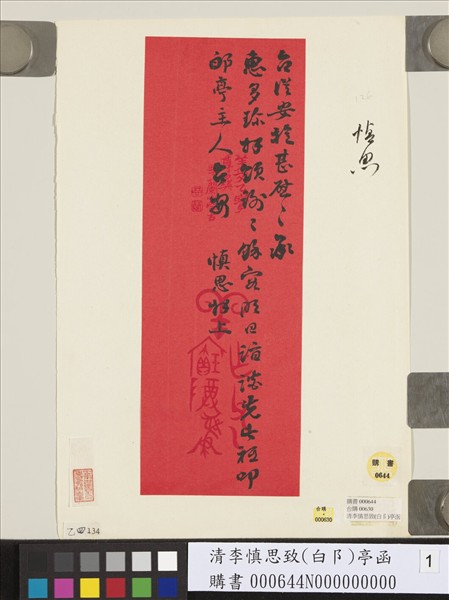 台從安旋甚慰々承
惠多珍好頓謝々餘容明日詣談先此祗叩
郋亭主人台安　慎思好上
慎思
購書
0644
購書 000644
台購 00630
清李慎思致(白阝)亭函
台購
000630
乙 134
清李慎思致(白阝)亭函
購書 000644N000000000
1